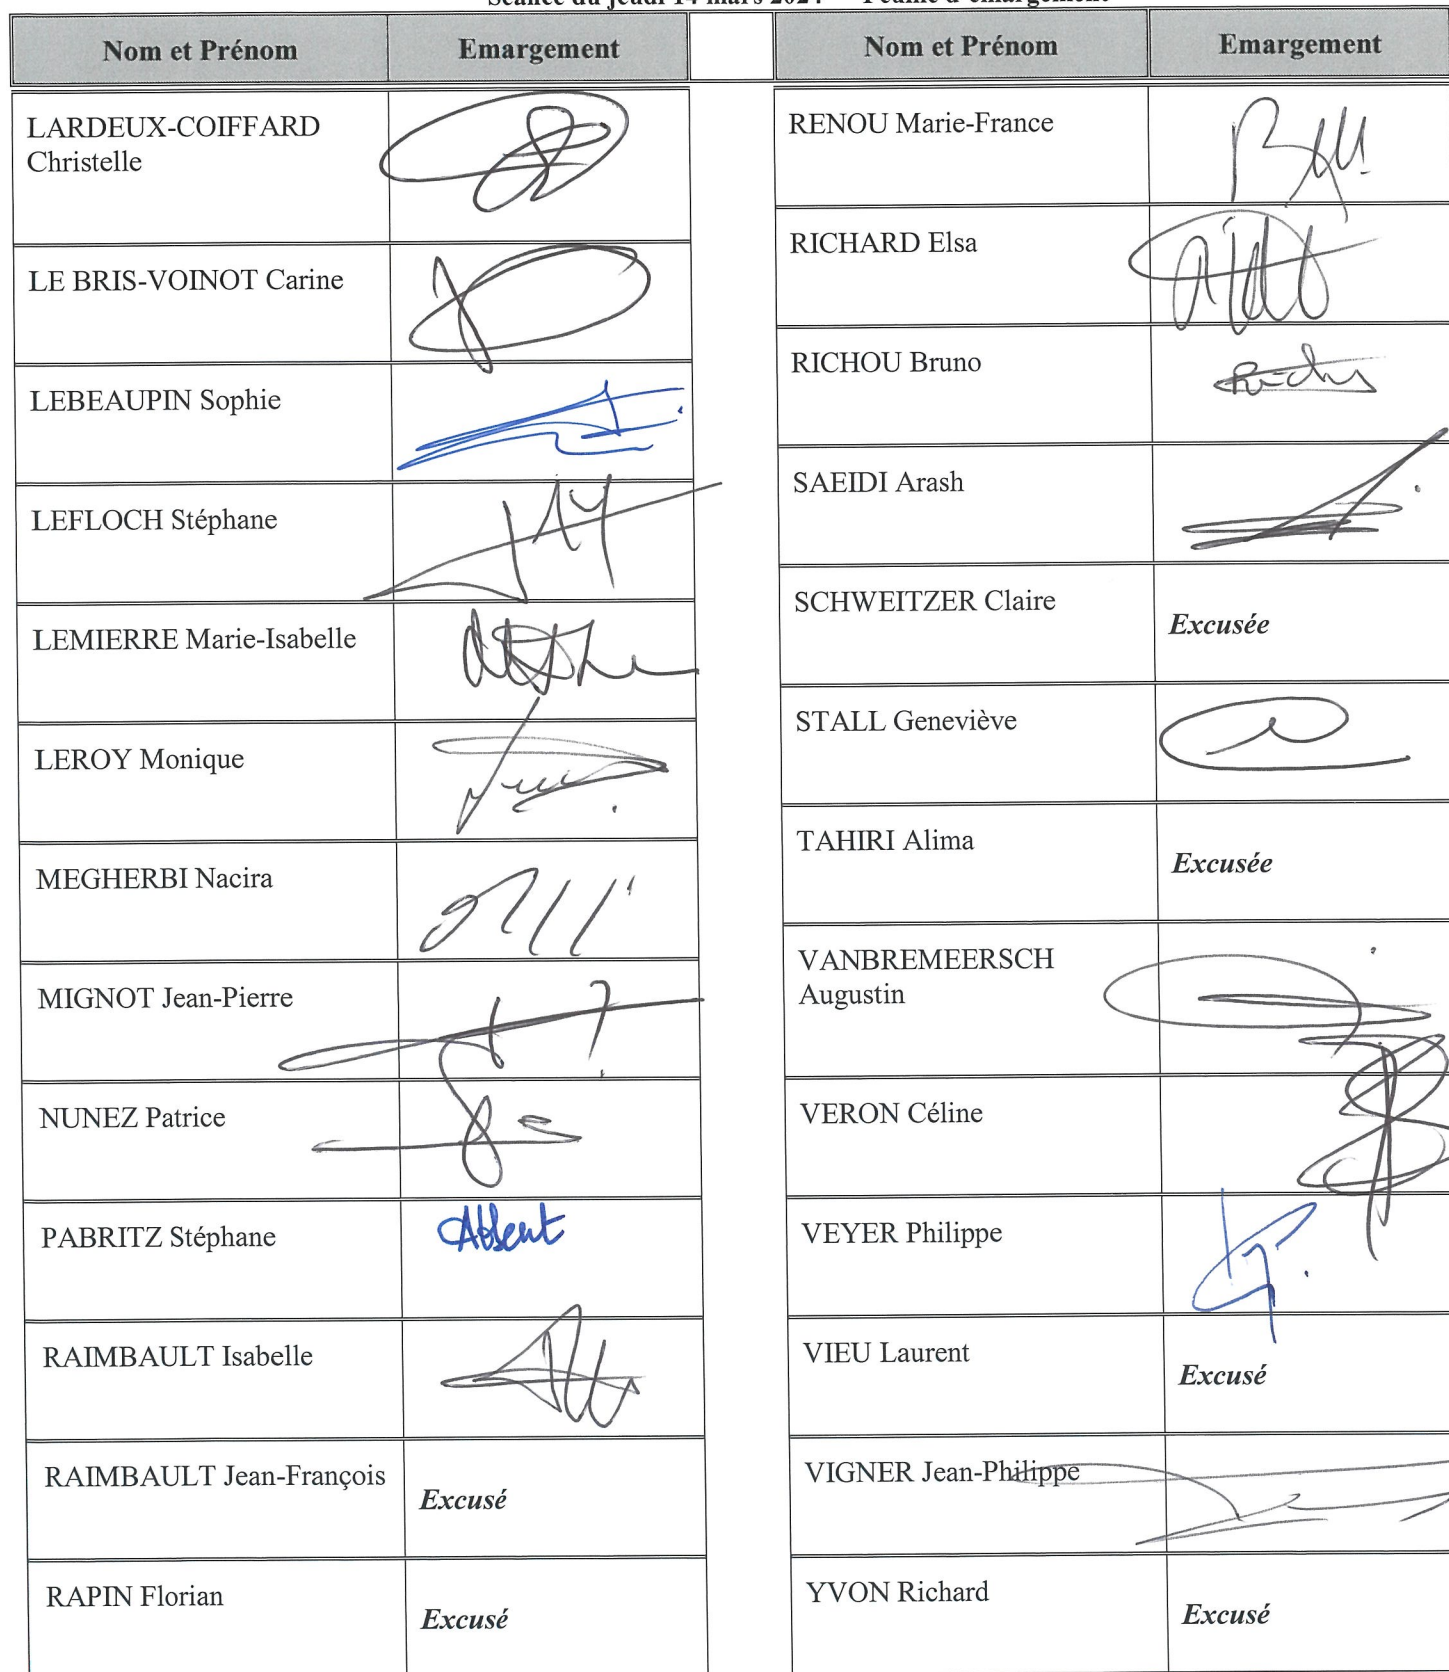 Séance du jeudi 14 mars 2024 – Feuille d'émargement
Nom et Prénom Emargement
LARDEUX-COIFFARD
Christelle
LE BRIS-VOINOT Carine
LEBEAUPIN Sophie
LEFLOCH Stéphane
LEMIERRE Marie-Isabelle
LEROY Monique
MEGHERBI Nacira
MIGNOT Jean-Pierre
NUNEZ Patrice
PABRITZ Stéphane Absent
RAIMBAULT Isabelle
RAIMBAULT Jean-François Excusé
RAPIN Florian Excusé
Nom et Prénom Emargement
RENOU Marie-France
RICHARD Elsa
RICHOU Bruno
SAEIDI Arash
SCHWEITZER Claire Excusée
STALL Geneviève
TAHIRI Alima Excusée
VANBREMEERSCH
Augustin
VERON Céline
VEYER Philippe
VIEU Laurent Excusé
VIGNER Jean-Philippe
YVON Richard Excusé